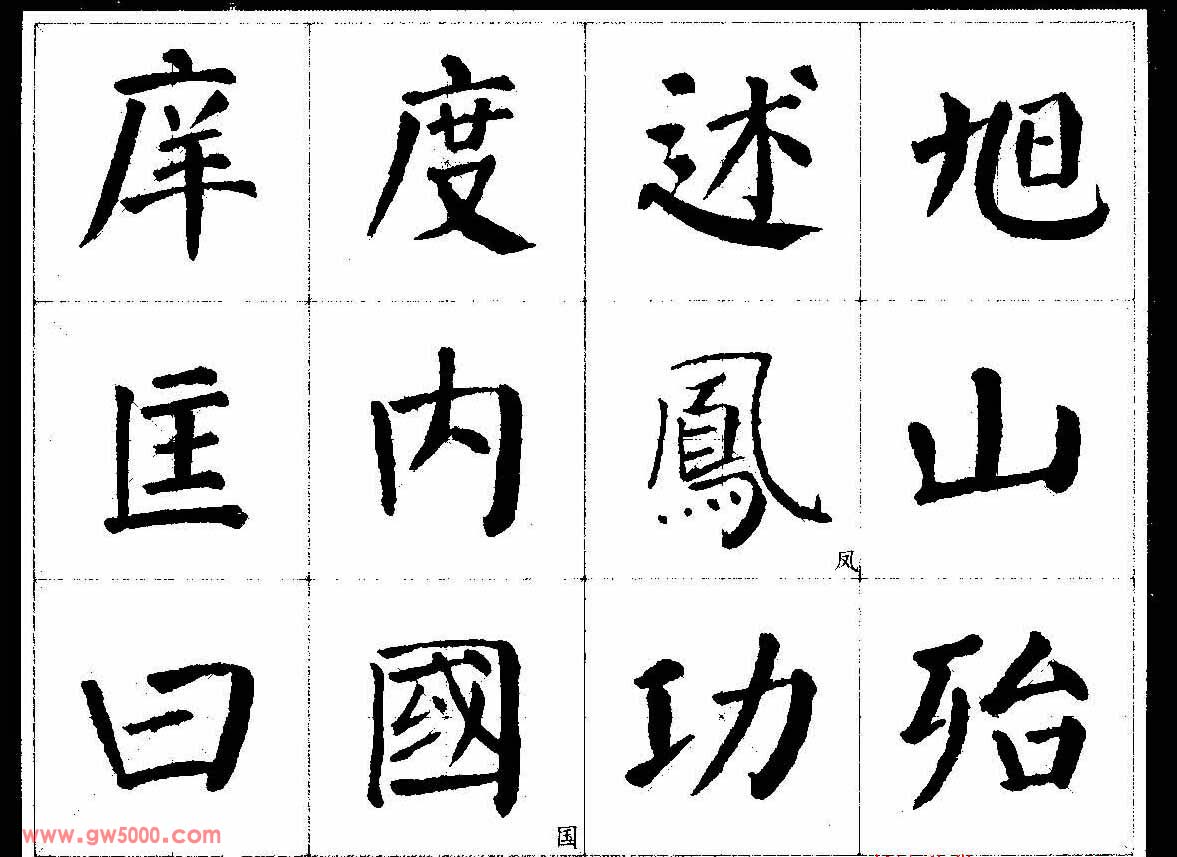 庠度述旭
匡内鳳山
凤
曰國功殆
国
www.gw5000.com